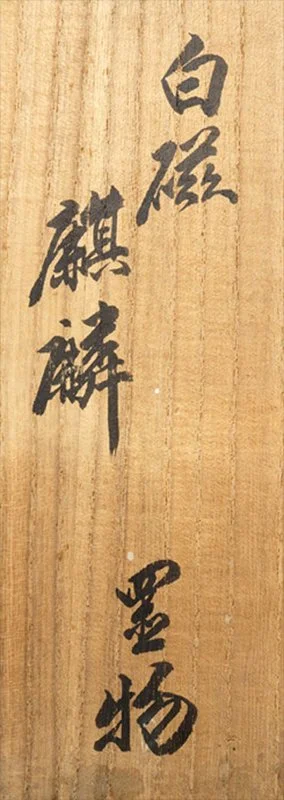 白磁
麒麟
置物